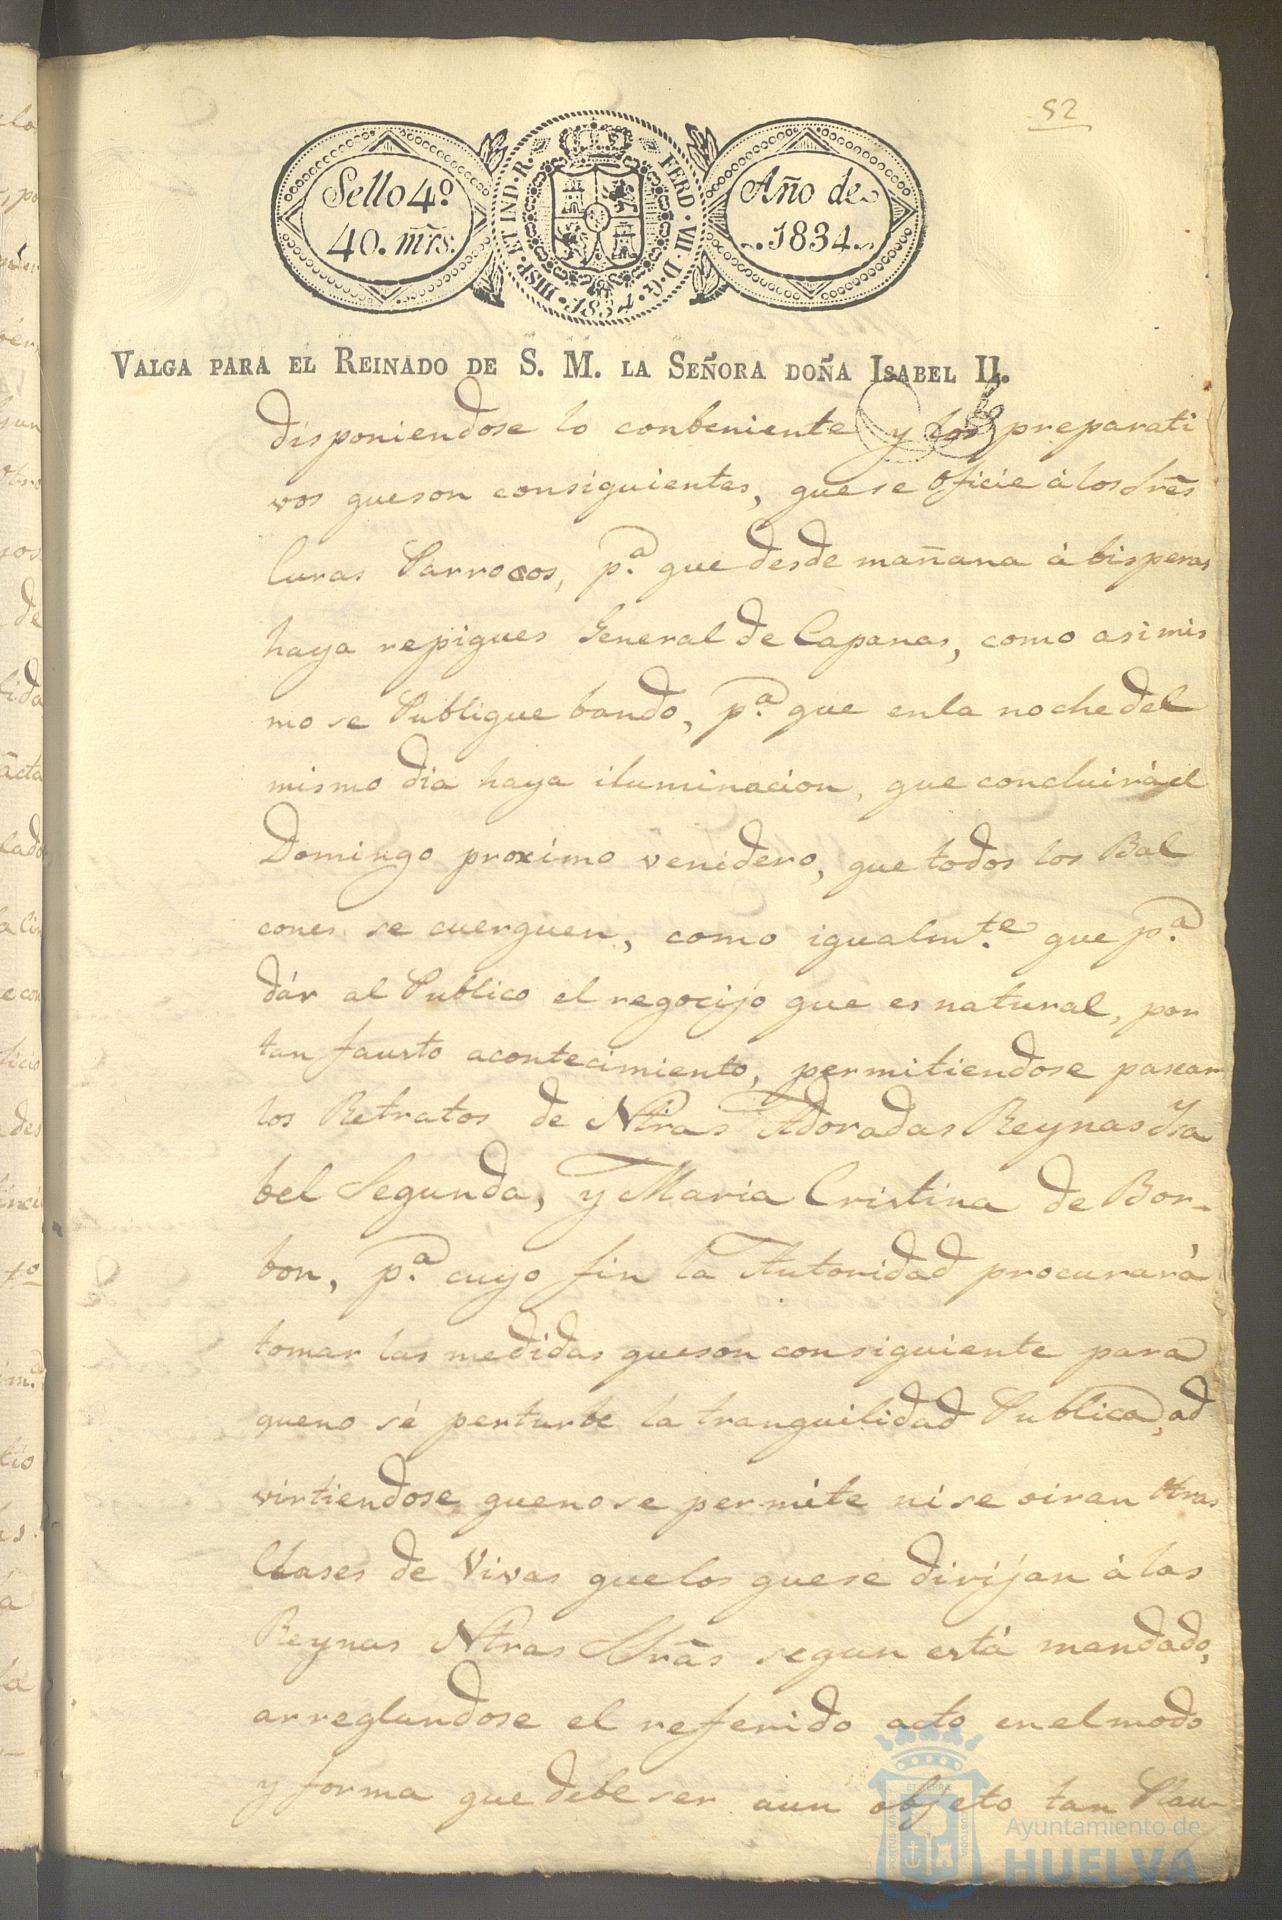 52
Sello 4º
40. mrs.
HISP. ET IND. R. FERD. VII. D. G. 1834.
Año de
1834.
VALGA PARA EL REINADO DE S. M. LA SEÑORA DOÑA ISABEL II.
disponiendose lo conbeniente y los preparati
vos que son consiguientes, que se oficie á los Sres
Curas Parrocos, pª que desde mañana á bisperas
haya repiques General de Capanas, como asimis
mo se Publique bando, pª que en la noche del
mismo dia haya iluminacion, que concluirá el
Domingo proximo venidero, que todos los Bal
cones se cuerguen, como igualmte que pª
dár al Publico el regocijo que es natural, por
tan fausto acontecimiento, permitiendose pasear
los Retratos de Ntras Adoradas Reynas Ysa
bel Segunda, y Maria Cristina de Bor-
bon, pª cuyo fin la Autoridad procurará
tomar las medidas que son consiguiente para
que no sé perturbe la tranquilidad Publica, ad
virtiendose que no se permite ni se oiran otras
Clases de Vivas que los que se dirijan á las
Reynas Ntras Sras segun está mandado,
arreglandose el referido acto en el modo
y forma que debe ser aun objeto tan Plau-
Ayuntamiento de
HUELVA